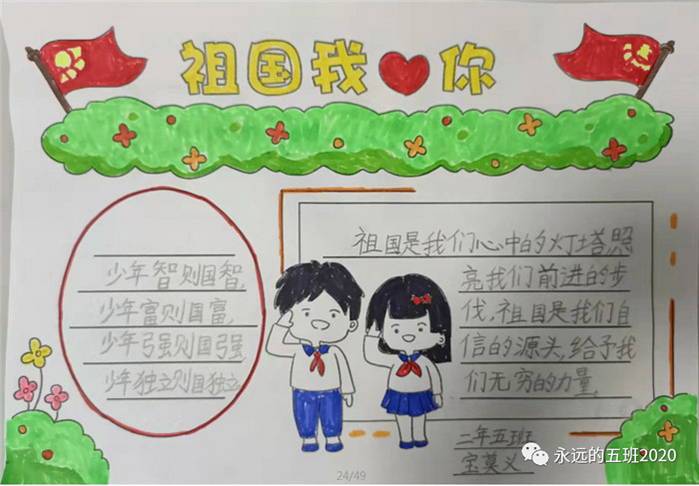 祖国我❤你
少年智则国智,
少年富则国富,
少年强则国强,
少年独立则国独立
祖国是我们心中的灯塔照
亮我们前进的步
伐,祖国是我们自
信的源头,给予我
们无穷的力量
二年五班
宝莫义
24/49
永远的五班2020